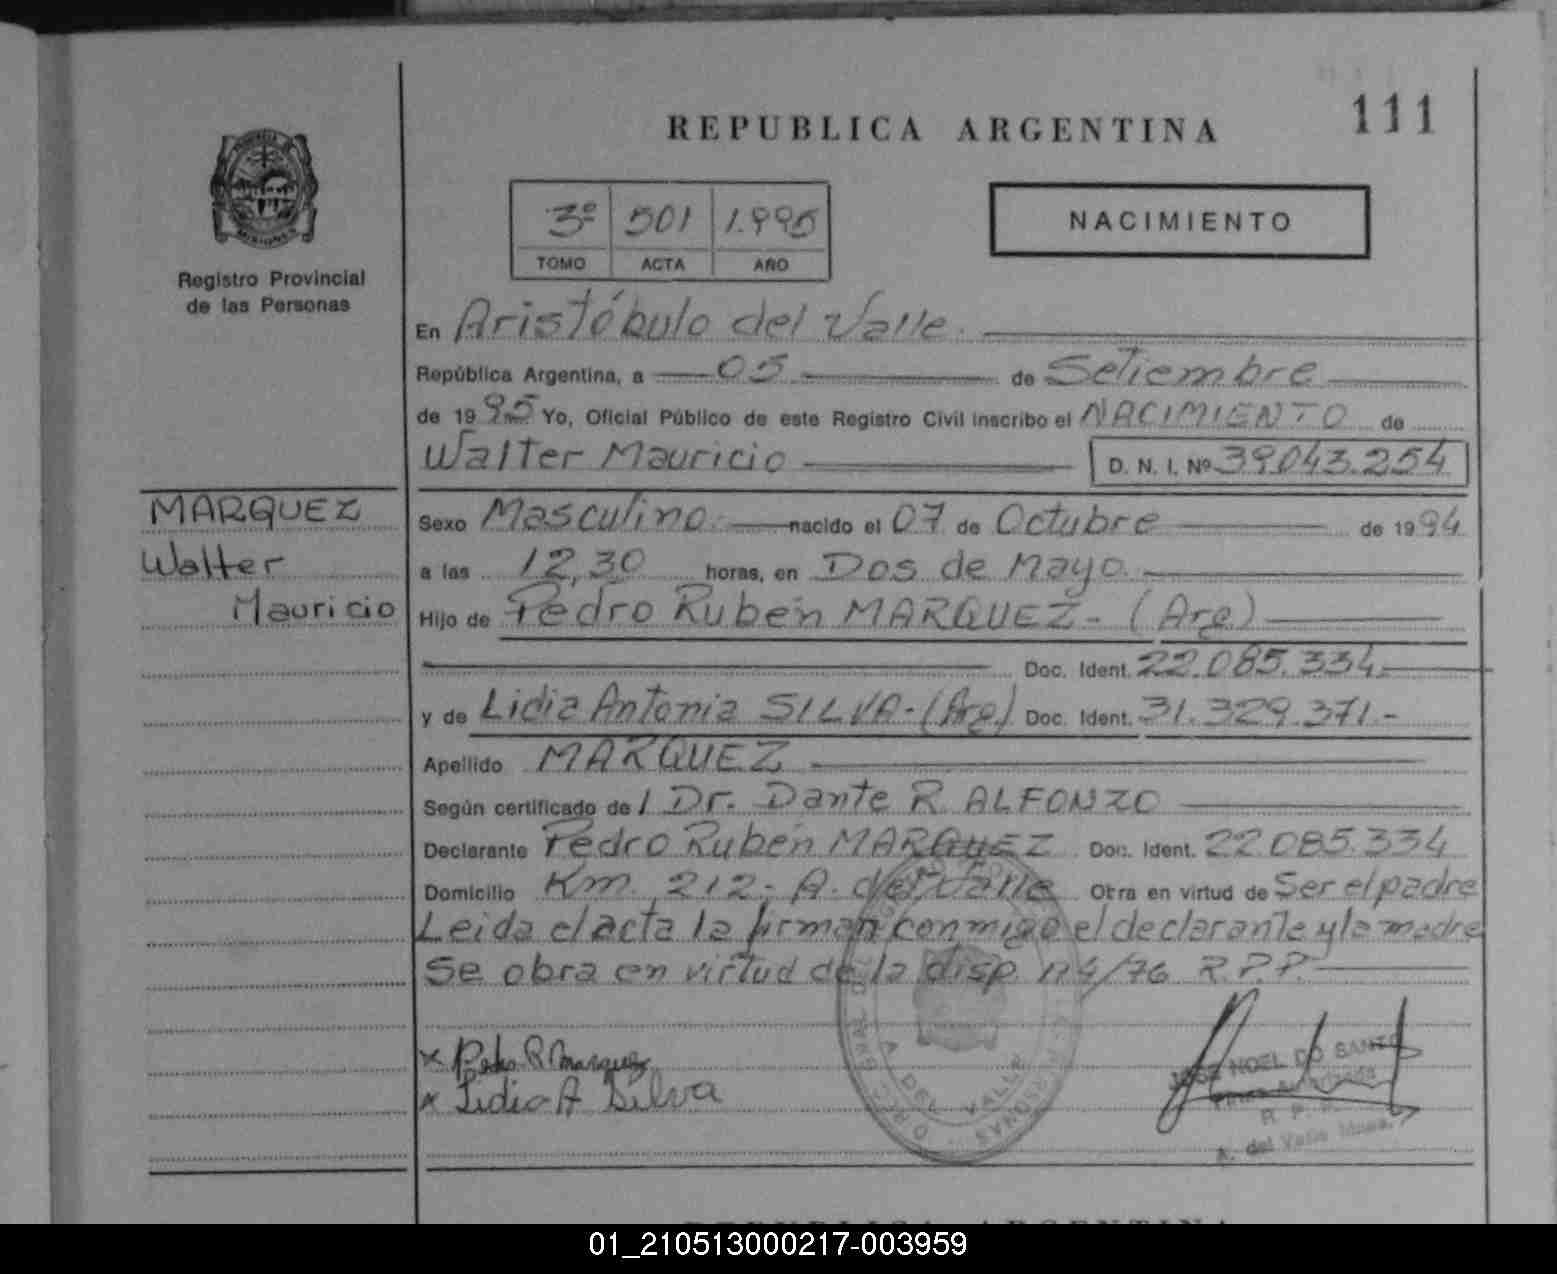 REPUBLICA ARGENTINA
111
MISIONES
Registro Provincial
de las Personas
3º 501 1.995
TOMO ACTA AÑO
NACIMIENTO
En Aristóbulo del Valle.
República Argentina, a 05 de Setiembre
de 1995 Yo, Oficial Público de este Registro Civil inscribo el NACIMIENTO de
Walter Mauricio D. N. I. Nº 39.043.254
MARQUEZ
Walter
Mauricio
Sexo Masculino nacido el 07 de Octubre de 1994
a las 12,30 horas, en Dos de Mayo.
Hijo de Pedro Rubén MARQUEZ - (Arg)
Doc. Ident. 22.085.334.-
y de Lidia Antonia SILVA - (Arg) Doc. Ident. 31.329.371.-
Apellido MARQUEZ
Según certificado de l Dr. Dante R. ALFONZO
Declarante Pedro Rubén MARQUEZ Doc. Ident. 22085.334
Domicilio Km. 212 - A. del Valle Obra en virtud de Ser el padre
Leida el acta la firman conmigo el declarante y la madre
Se obra en virtud de la disp. n 4/76 R.P.P.
x Pedro R. Marquez
x Lidia A Silva
A. DEL VALLE
JOSE NOEL DO SANTO
A. del Valle
REPUBLICA ARGENTINA
01_210513000217-003959